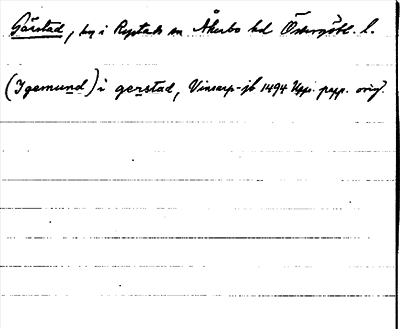 Gärstad, by i Rystads sn Åkerbo hd Östergötl. l.
(Igemund) i gerstad, Vinsarp-jb 1494 Upps. papp. orig.